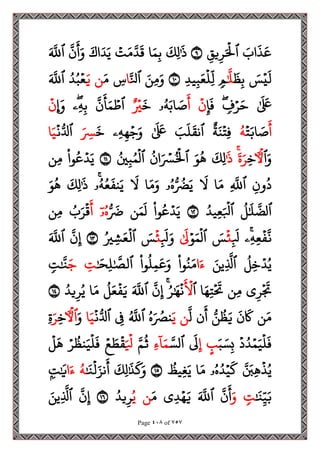 عَذَابَ ٱلْحَرِيقِ ٩ ذَٰلِكَ بِمَا قَدَّمَتْ يَدَاكَ وَأَنَّ ٱللَّهَ
لَيْسَ بِظَلَّٰمٍ لِّلْعَبِيدِ ١٠ وَمِنَ ٱلنَّاسِ مَن يَعْبُدُ ٱللَّهَ
عَلَىٰ حَرْفٍ فَإِنْ أَصَابَهُۥ خَيْرٌ ٱطْمَأَنَّ بِهِۦ وَإِنْ
أَصَابَتْهُ فِتْنَةٌ ٱنقَلَبَ عَلَىٰ وَجْهِهِۦ خَسِرَ ٱلدُّنْيَا
وَٱلْأَخِرَةَ ذَٰلِكَ هُوَ ٱلْخُسْرَانُ ٱلْمُبِينُ ١١ يَدْعُوا۟ مِن
دُونِ ٱللَّهِ مَا لَا يَضُرُّهُۥ وَمَا لَا يَنفَعُهُۥ ذَٰلِكَ هُوَ
ٱلضَّلَٰلُ ٱلْبَعِيدُ ١٢ يَدْعُوا۟ لَمَن ضَرُّهُۥ أَقْرَبُ مِن
نَّفْعِهِۦ لَبِئْسَ ٱلْمَوْلَىٰ وَلَبِئْسَ ٱلْعَشِيرُ ١٣ إِنَّ ٱللَّهَ
يُدْخِلُ ٱلَّذِينَ ءَامَنُوا۟ وَعَمِلُوا۟ ٱلصَّٰلِحَٰتِ جَنَّٰتٍ
تَجْرِى مِن تَحْتِهَا ٱلْأَنْهَٰرُ إِنَّ ٱللَّهَ يَفْعَلُ مَا يُرِيدُ ١٤
مَن كَانَ يَظُنُّ أَن لَّن يَنصُرَهُ ٱللَّهُ فِى ٱلدُّنْيَا وَٱلْأَخِرَةِ
فَلْيَمْدُدْ بِسَبَبٍ إِلَى ٱلسَّمَآءِ ثُمَّ لْيَقْطَعْ فَلْيَنظُرْ هَلْ
يُذْهِبَنَّ كَيْدُهُۥ مَا يَغِيظُ ١٥ وَكَذَٰلِكَ أَنزَلْنَٰهُ ءَايَٰتٍ
بَيِّنَٰتٍ وَأَنَّ ٱللَّهَ يَهْدِى مَن يُرِيدُ ١٦ إِنَّ ٱلَّذِينَ
Page ٤٠٨ of ٧٥٧